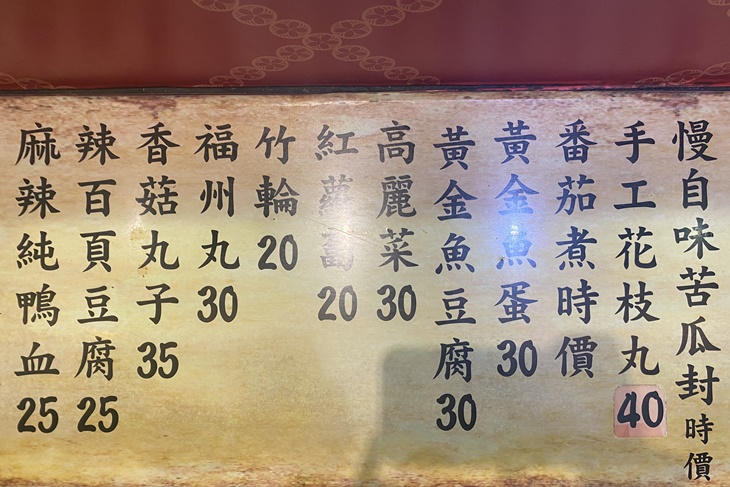 慢自味苦瓜封時價
手工花枝丸40
番茄煮時價
黃金魚蛋30
黃金魚豆腐30
高麗菜30
紅蘿蔔20
竹輪20
福州丸30
香菇丸子35
辣百頁豆腐25
麻辣純鴨血25